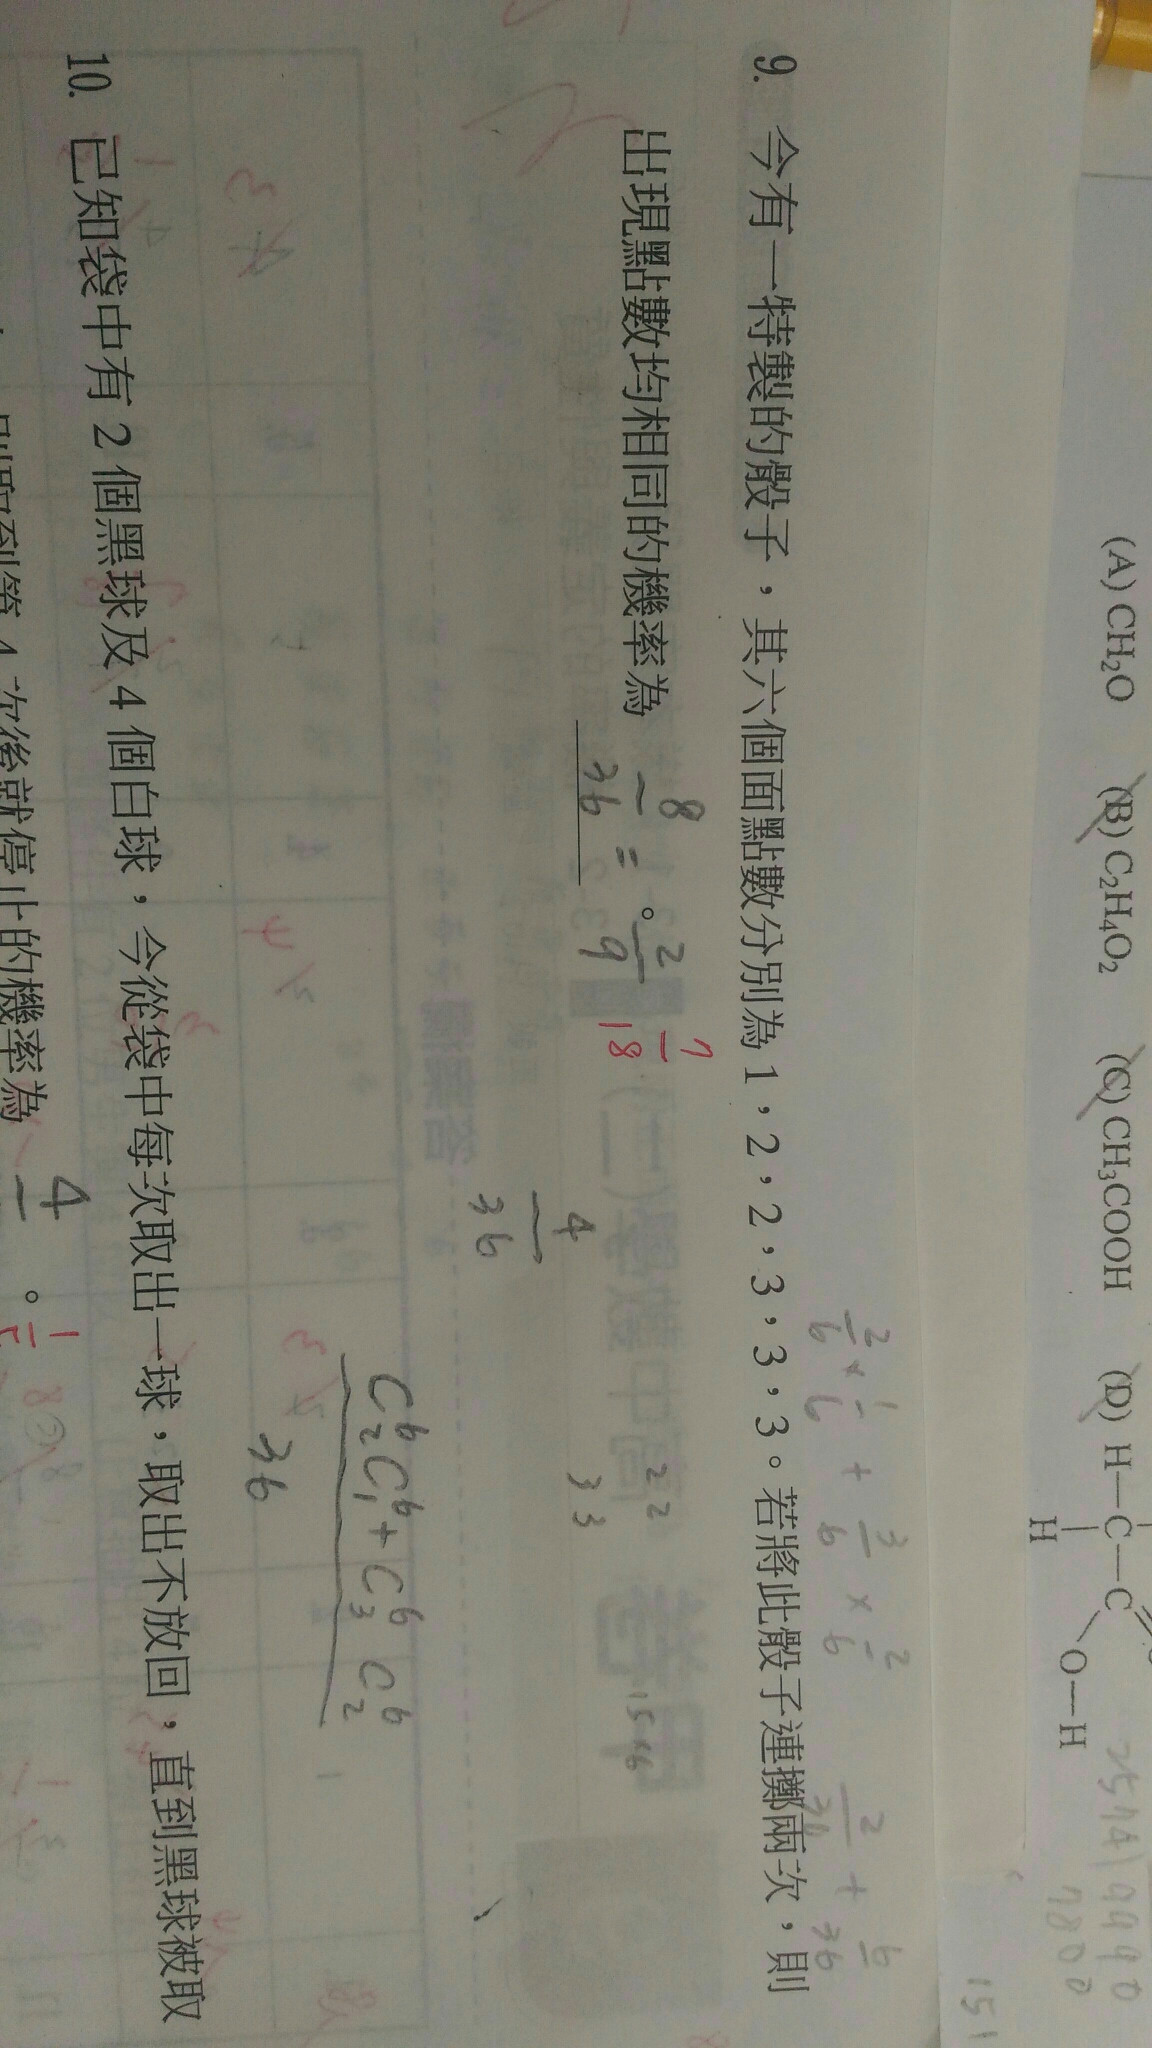 (A) CH₂O (B) C₂H₄O₂ (C) CH₃COOH (D) H—C—C
H
O—H
25741 9990
7800
151
2/6 × 1/6 + 3/6 × 2/6
2/36 + 6/36
9. 今有一特製的骰子，其六個面點數分別為 1，2，2，3，3，3。若將此骰子連擲兩次，則
出現點數均相同的機率為 8/36 = 2/9 。 7/18
2 2
3 3
15×6
4/36
C⁶₂C⁶₁+C⁶₃C⁶₂
36
10. 已知袋中有 2 個黑球及 4 個白球，今從袋中每次取出一球，取出不放回，直到黑球被取
則取到第 4 次後就停止的機率為 4 。 1/5